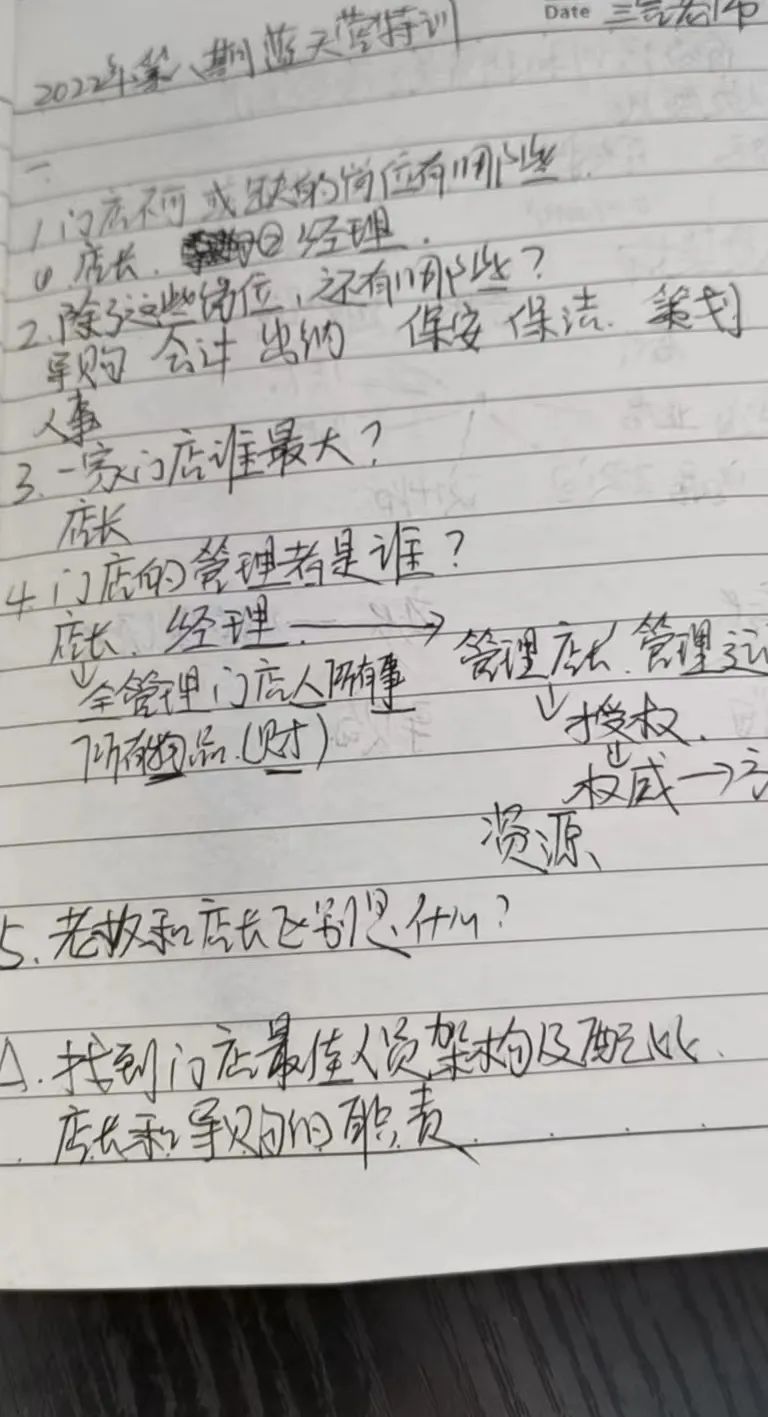 Date
2022年第八期蓝天营特训
一
1 门店不可或缺的岗位有哪些
① 店长. ② 经理.
2. 除了这些岗位,还有哪些?
采购 会计 出纳 保安 保洁. 策划
人事
3. 一家门店谁最大?
店长
4. 门店的管理者是谁?
店长、经理. → 管理店长、管理
↓全管理门店人所有事 ↓授权.
所有物品.(财) ↓权威→
资源、
5. 老板和店长区别是什么?
△. 找到门店最佳人员架构及配比.
店长和采购的职责.